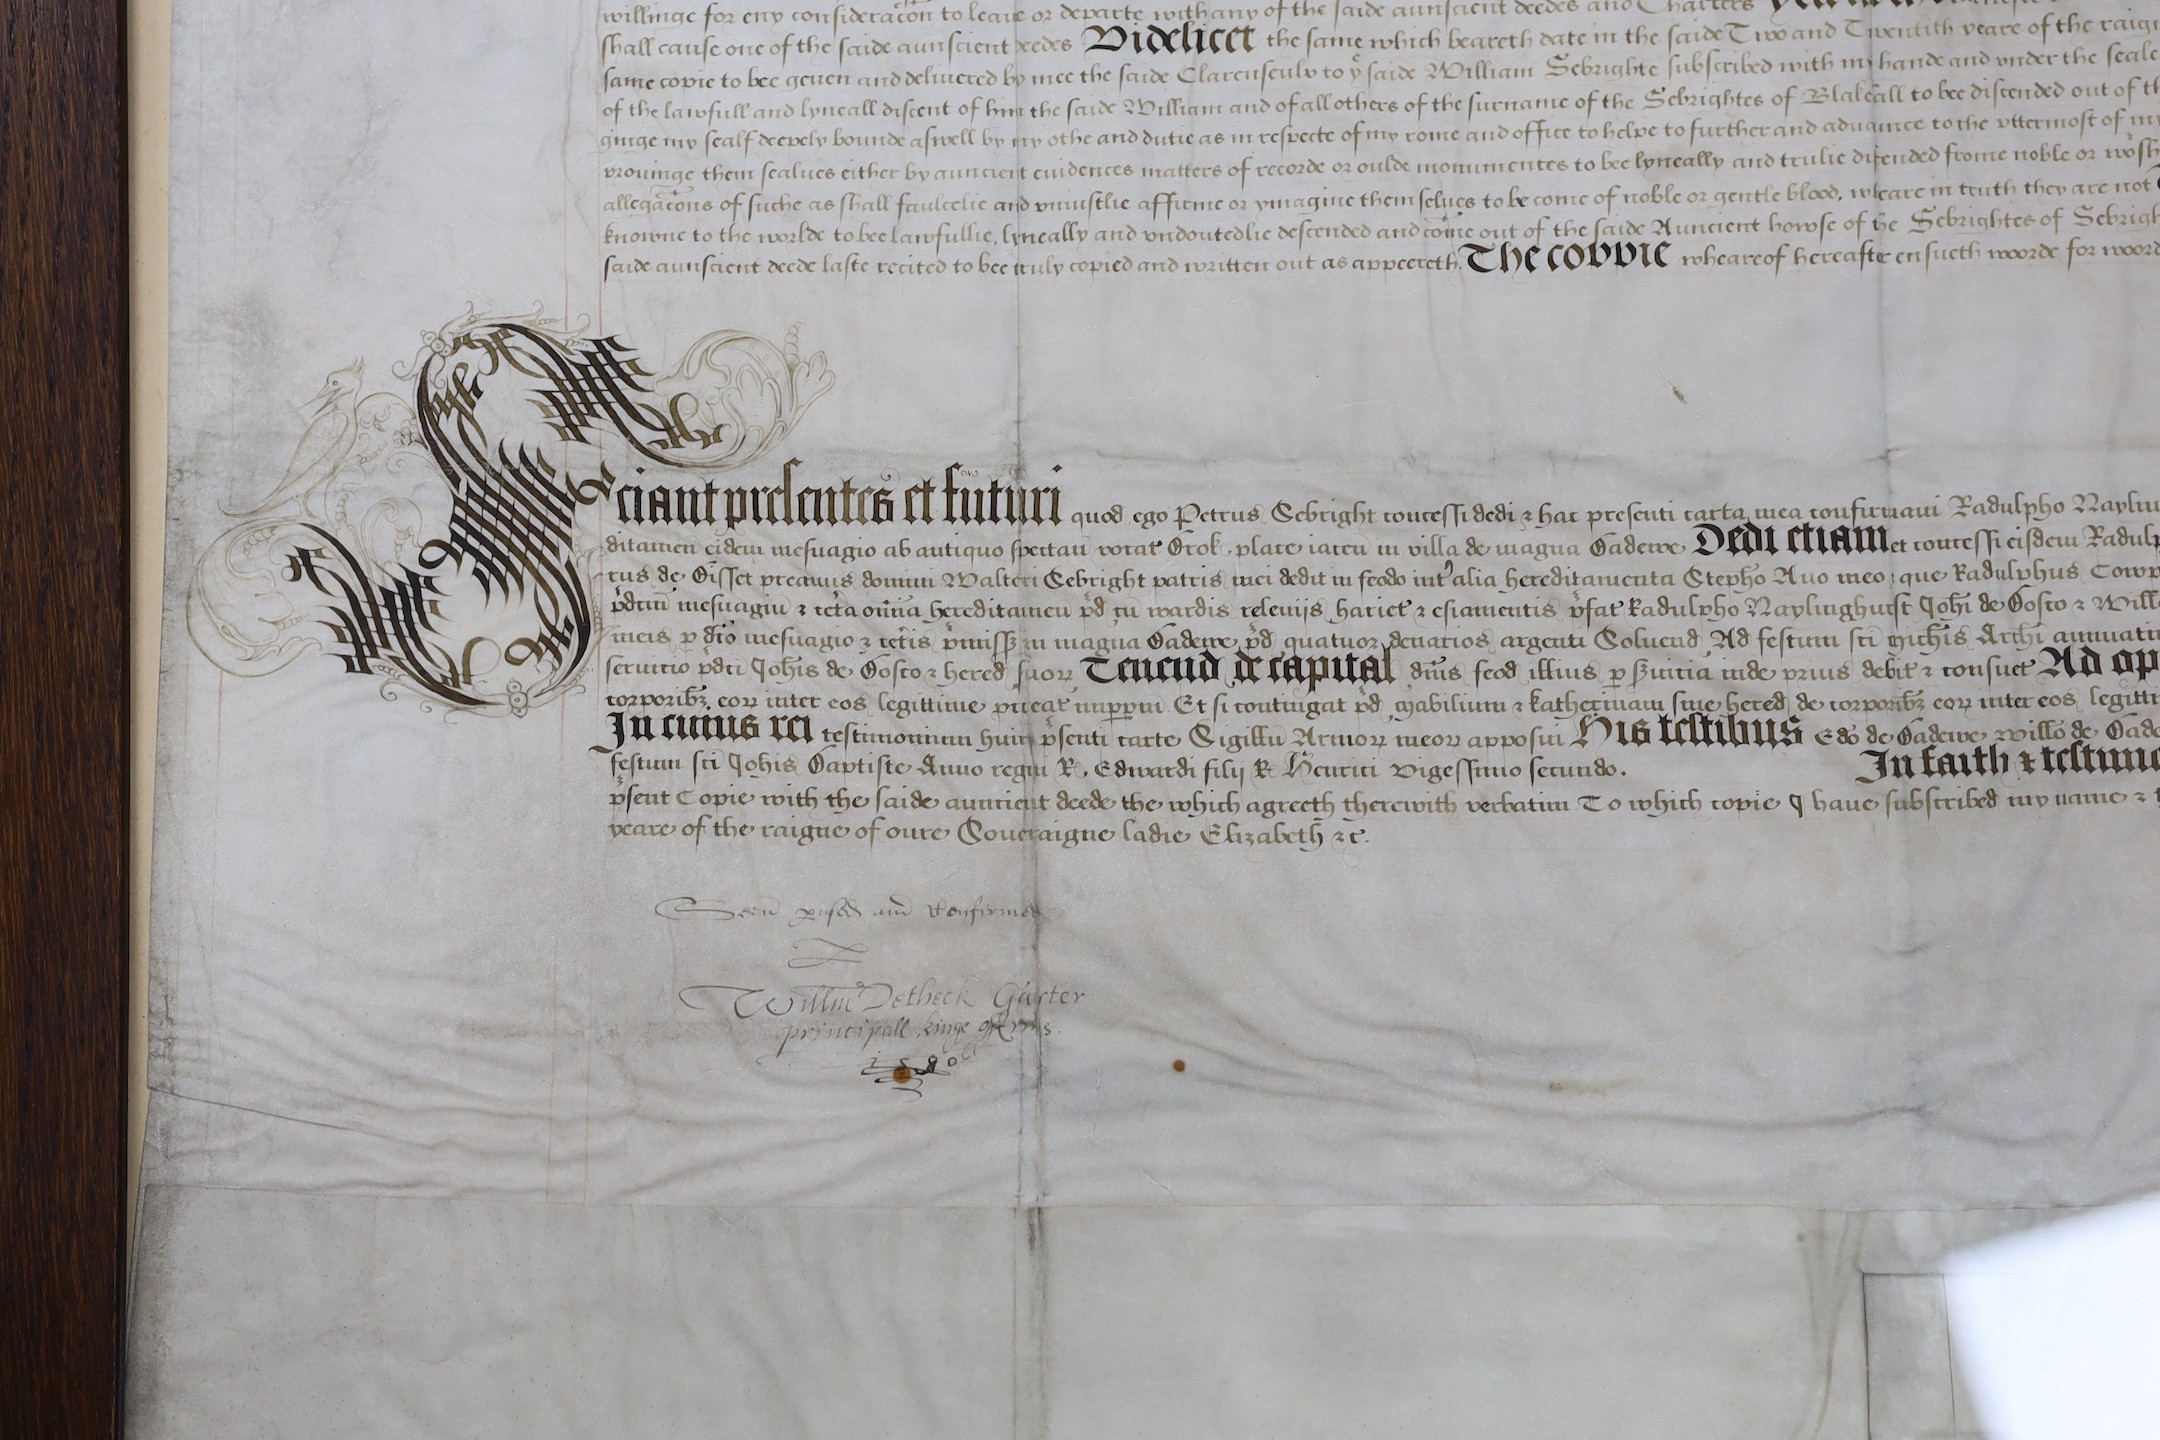 willinge for eny consideracõn to leave or departe with any of the saide aunscient deedes and Charters
shall cause one of the saide aunscient deedes Videlicet the same which beareth date in the saide Two and Twentith yeare of the raig
same copie to bee geven and delivered by mee the saide Clarenseulx to yͤ saide William Sebrighte subscribed with my hande and vnder the seale
of the lawfull and lyneall discent of him the saide William and of all others of the surname of the Sebrightes of Blakeall to bee discended out of th
ginge my sealf deepely bounde aswell by my othe and dutie as in respecte of my rome and office to helpe to further and advaunce to the vttermost of my
provinge them sealves either by auncient evidences matters of recorde or oulde monumentes to bee lyneally and trulie discended frome noble or wosh
allegacõns of suche as shall faulcelie and vniustlie affirme or ymagine them selves to be come of noble or gentle blood, wheare in truth they are not
knowne to the worlde to bee lawfullie, lyneally and vndoutedlie descended and come out of the saide Auncient howse of the Sebrightes of Sebrigh
saide aunscient deede laste recited to bee truly copied and written out as appeereth. The coppie wheareof hereafter ensueth woorde for woord
Sciant presentes et futuri quod ego Petrus Sebright concessi dedi & hac presenti carta mea confirmavi Radulpho Naylin
ditamen eidem mesuagio ab antiquo spectan vocat Brok place iacen in villa de magna Badewe Dedi etiam et concessi eisdem Radulp
rus de Bisset precavus domini Walteri Sebright patris mei dedit in feodo int' alia hereditamenta Stepho Avo meo que Radulphus Cowp
p̄dcm̄ mesuagiū & cet'a om̄ia hereditamen p̄d cū wardis relevijs hariet & esiamentis p̄fat Radulpho Naylinghurst Joh̄i de Bosco & Will
meis p d̄co mesuagio & cet̄is p̄miss in magna Badewe p̄d quatuor denarios argenti Solvend Ad festum sc̄i Mich̄is Arch̄i annuati
servitio p̄dc̄i Joh̄is de Bosco & hered suoꝝ Tenend de capital dn̄is feod illius p s̄vitia inde prius debit & consuet Ad op
corporibꝫ eoꝝ inter eos legittime p̄creat imp̄p̄m Et si contingat p̄d Mabilium & Katherinam sine hered de corporibꝫ eoꝝ inter eos legitti
In cuius rei testimonium huic p̄senti carte Sigillū Armoꝝ meoꝝ apposui His testibus Edo de Badewe willo de Bade
festum sc̄i Joh̄is Baptiste Anno regni R. Edwardi filij R. Henrici vigessimo secundo. In faith & testimo
p̄sent Copie with the saide auncient deede the which agreeth therewith verbatim To which copie I have subscribed my name &
yeare of the raigne of oure Soveraigne ladie Elizabeth &c.
Seen pused and Confirmed
Willm̄ Detheck Garter
principall kinge of Arms